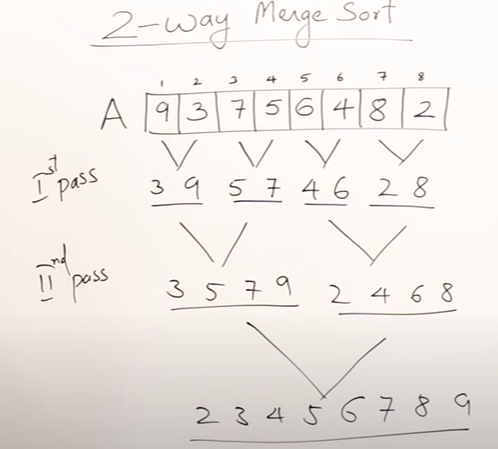 2-way Merge Sort
1 2 3 4 5 6 7 8
A 9 3 7 5 6 4 8 2
Ist pass 3 9 5 7 4 6 2 8
IInd pass 3 5 7 9 2 4 6 8
2 3 4 5 6 7 8 9